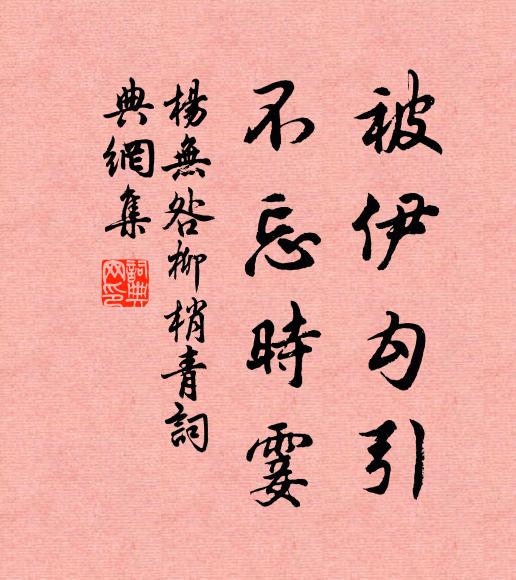 被伊勾引
不忘時霎
楊無咎柳梢青詞
典網集
詞典網印